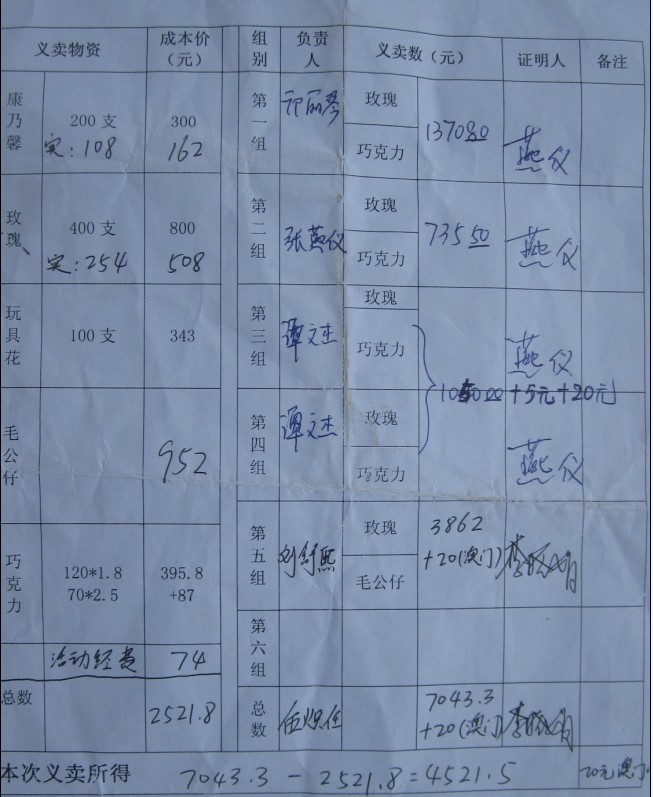 义卖物资 成本价（元） 组别 负责人 义卖数（元） 证明人 备注
康乃馨 200支 300 第一组 玫瑰
实：108 162 巧克力 1370.80 燕仪
玫瑰 400支 800 第二组 张燕仪 玫瑰 735.50 燕仪
实：254 508 巧克力
玩具花 100支 343 第三组 谭文杰 玫瑰
巧克力 燕仪
+5元+20元
毛公仔 952 第四组 谭文杰 玫瑰
巧克力 燕仪
巧克力 120*1.8 395.8 第五组 刘舒熙 玫瑰 3862
70*2.5 +87 毛公仔 +20(澳门)
活动经费 74 第六组
总数 2521.8 总数 7043.3
+20(澳门)
本次义卖所得 7043.3 - 2521.8 = 4521.5 20元澳门